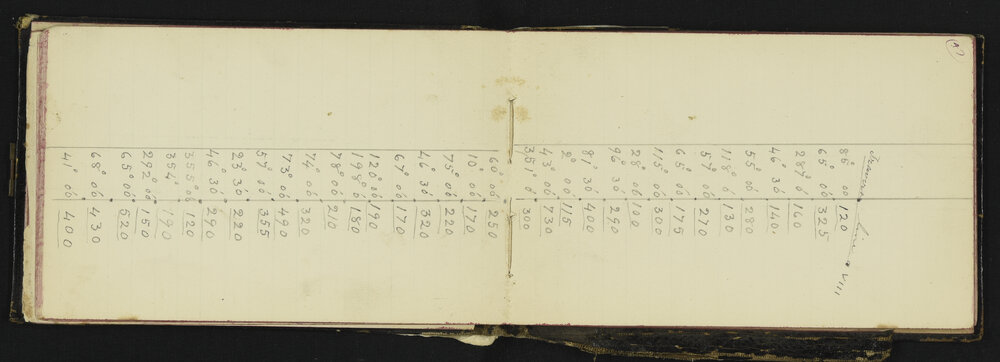 Traverse Line VIII
85° 00' 120
65° 00' 325
287° 0' 160
46° 30' 140
55° 00' 280
118° 0' 130
57° 00' 270
65° 0' 175
113° 00' 380
28° 00' 100
96° 30' 290
81° 30' 400
2° 00' 115
43° 00' 730
351° 0' 300
60° 00' 250
10° 00' 170
75° 00' 220
46° 30' 320
67° 00' 170
120° 00' 190
198° 0' 180
78° 00' 210
74° 00' 320
73° 00' 490
57° 00' 355
23° 30' 220
46° 30' 290
355° 00' 120
354° 190
292° 00' 150
65° 00' 520
68° 00' 430
41° 00' 400